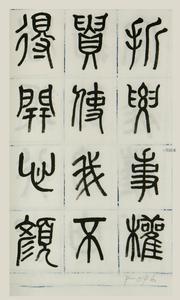 折要事權
貴使我不
得開心顏